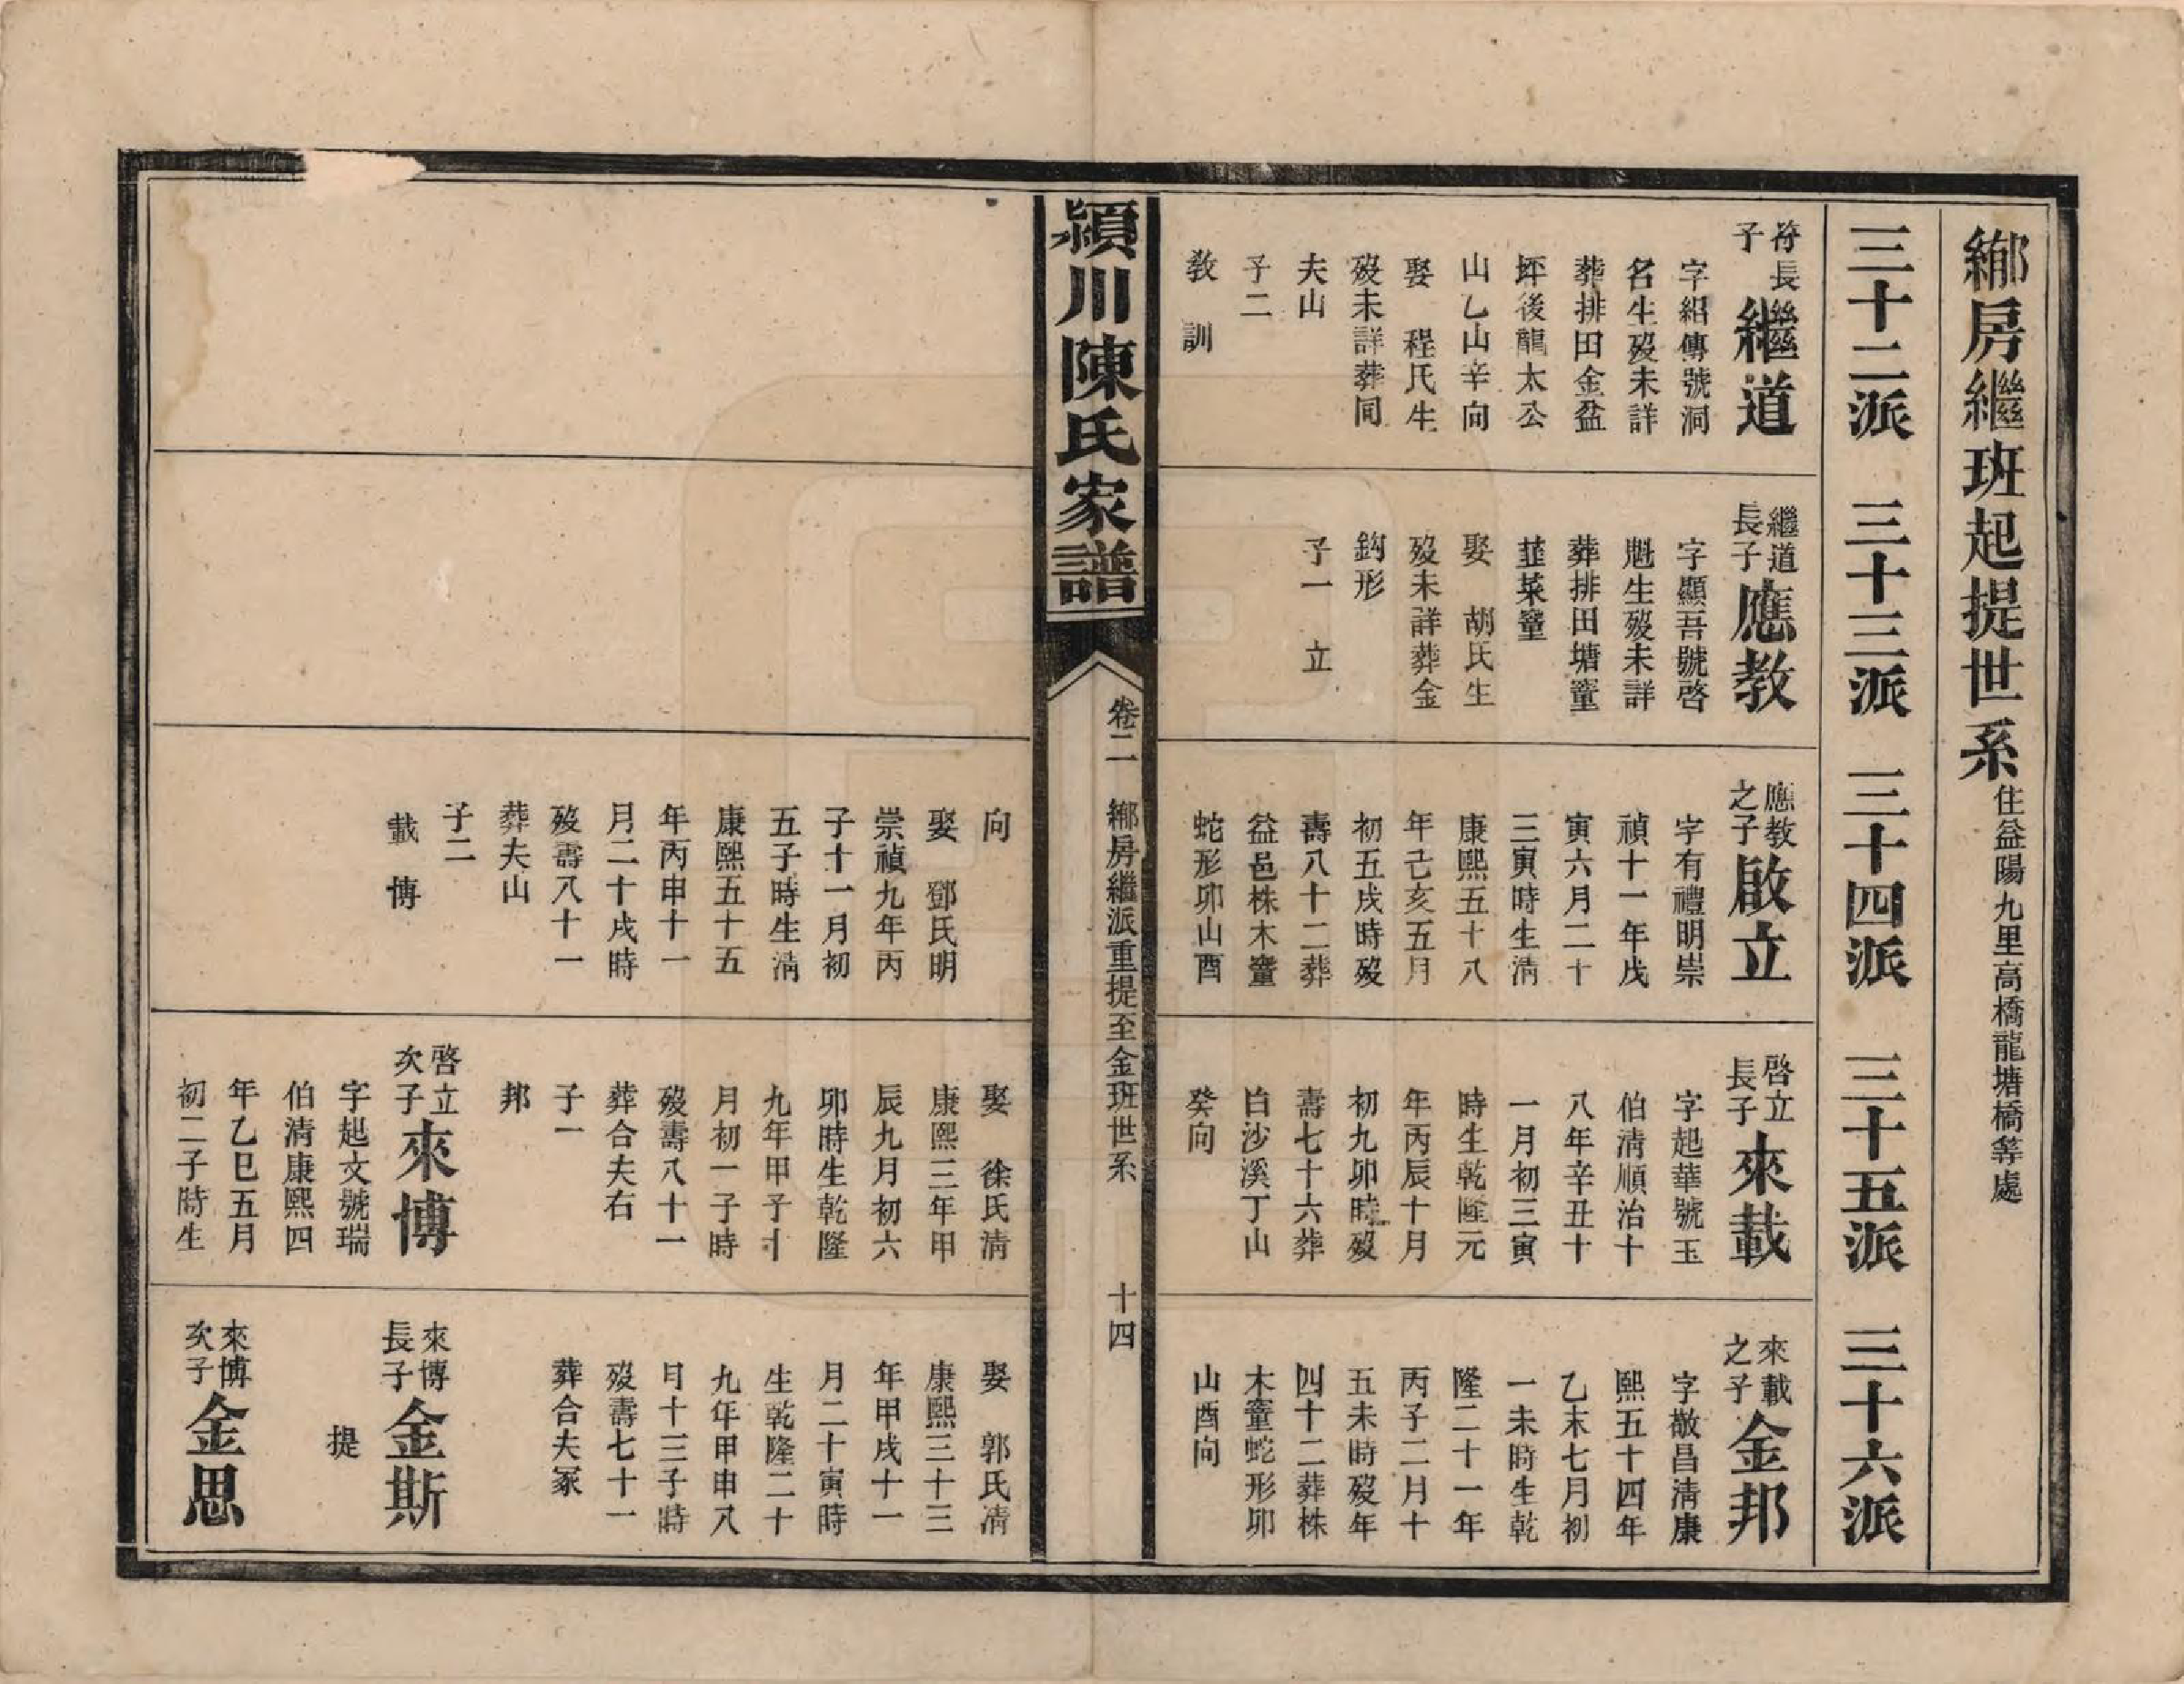 緢房繼班起提世系住益陽九里高橋龍塘橋等處
三十二派
三十三派
三十四派
三十五派
三十六派
符長
子
繼道
字紹傳號洞
名生歿未詳
葬排田金盆
坪後龍太公
山乙山辛向
娶　程氏生
歿未詳葬同
夫山
子二
教　訓
繼道
長子
應教
字顯吾號啓
魁生歿未詳
葬排田塘𡑞
韮菜𡑞
娶　胡氏生
歿未詳葬金
鈎形
子一　立
應教
之子
啟立
字有禮明崇
禎十一年戊
寅六月二十
三寅時生清
康熙五十八
年己亥五月
初五戌時歿
壽八十二葬
益邑株木𡑞
蛇形卯山酉
啓立
長子
來載
字起華號玉
伯清順治十
八年辛丑十
一月初三寅
時生乾隆元
年丙辰十月
初九卯時歿
壽七十六葬
白沙溪丁山
癸向
來載
之子
金邦
字敬昌清康
熙五十四年
乙未七月初
一未時生乾
隆二十一年
丙子二月十
五未時歿年
四十二葬株
木𡑞蛇形卯
山酉向
潁川陳氏家譜
卷二　鄉房繼派重提至金班世系　十四
向
娶　鄧氏明
崇禎九年丙
子十一月初
五子時生清
康熙五十五
年丙申十一
月二十戌時
歿壽八十一
葬夫山
子二
載　博
娶　徐氏清
康熙三年甲
辰九月初六
卯時生乾隆
九年甲子十
月初一子時
歿壽八十一
葬合夫右
子一
邦
啓立
次子
來博
字起文號瑞
伯清康熙四
年乙巳五月
初二子時生
娶　郭氏清
康熙三十三
年甲戌十一
月二十寅時
生乾隆二十
九年甲申八
月十三子時
歿壽七十一
葬合夫冢
來博
長子
金斯
提
來博
次子
金思